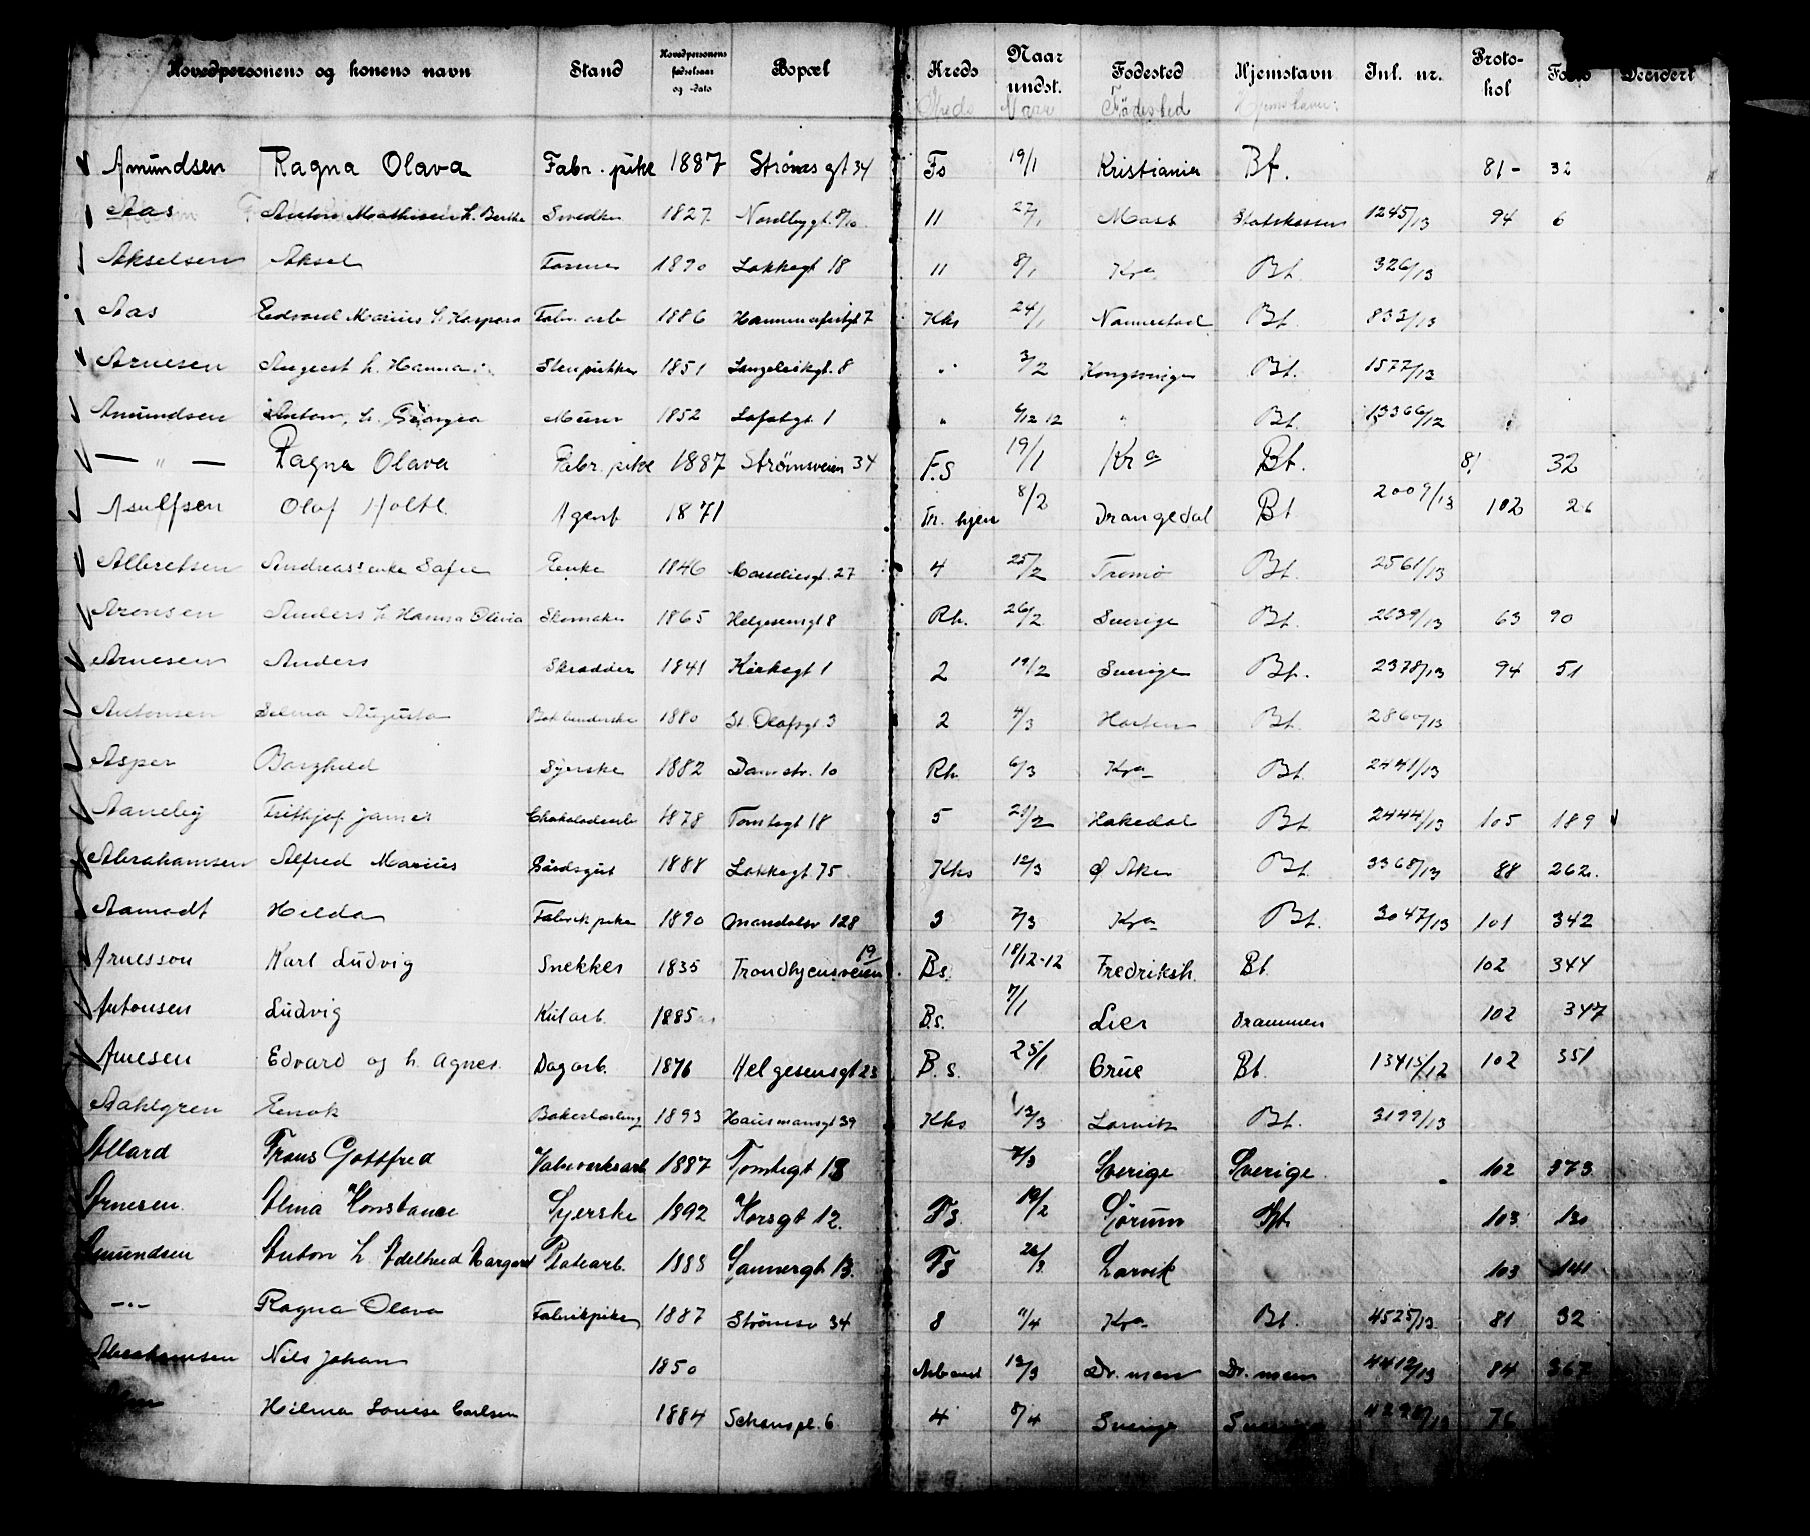 Hovedpersonens og konens navn Stand Hovedpersonens fødselsaar og -dato Bopæl Kreds Naar undst. Fødested Hjemstavn Inl. nr. Proto-kol Folio Decidert
Kreds Naar Fødested Hjemstavn
Amundsen Ragna Olava Fabr. pike 1887 Strømsgt 34 Fs 19/1 Kristiania Bt. 81- 32
Aas Anton Mathisen h. Berthe Snedker 1827 Nordbygt. 11 27/1 Moss Statskassen 1245/13 94 6
Akselsen Aksel Former 1890 Lakkegt 18 11 8/1 Kra Bt. 326/13
Aas Edvard Marius h. Kaspara Fabr. arb 1886 Hammerfestgt 7 Khs 24/1 Nannestad Bt. 833/13
Arnesen August h. Hanna Stenpukker 1851 Langeleikgt. 8 " 3/2 Kongsvinger Bt. 1577/13
Amundsen Anton, h. Georgea Murer 1852 Lofotgt 1 " 6/12 12 " Bt. 13366/12
— " — Ragna Olava Fabr. pike 1887 Strømsveien 34 F.S 19/1 Kra Bt. 81 32
Asulfsen Olaf Holtl. Agent 1871 Tr. hjem 8/2 Drangedal Bt 2009/13 102 26
Albretsen Andreas enke Sofie Enke 1846 Maridiesgt. 27 4 25/2 Tromø Bt. 2561/13
Arensen Anders h Hanna Olivia Skomaker 1865 Helgesensgt 8 Rh. 26/2 Sverige Bt. 2639/13 63 90
Arnesen Anders Skrædder 1841 Kirkegt 1 2 19/2 Sverige Bt. 2378/13 94 51
Antonsen Selma Augusta Bokbinderske 1880 St. Olafsgt. 3 2 4/3 Horten Bt. 2860/13
Asper Borghild Syerske 1882 Damstr. 10 Rh. 6/3 Kra Bt. 2441/13
Aaneby Frithjof James Chokoladearb 1878 Tomtegt 18 5 21/2 Hakedal Bt. 2444/13 105 189
Abrahamsen Alfred Marius Gårdsgut 1888 Lakkegt 75 Khs 12/3 Ø Aker Bt. 3368/13 88 262.
Aamodt Hilda Fabrik pike 1890 Maridalsv 128 3 7/3 Kra Bt. 3047/13 101 342
Arnesson Karl Ludvig Snekker 1835 Trondhjemsveien 19 Bs. 18/12-12 Fredriksh. Bt. 102 344
Antonsen Ludvig Kularb. 1885 B.s. 7/1 Lier Drammen 102 347
Arnesen Edvard og h. Agnes. Dagarb. 1876 Helgesensgt 23 B.s. 25/1 Grue Bt. 13415/12 102 351
Aahlgren Enok Bakerlærling 1893 Hausmansgt 39 Khs 13/3 Larvik Bt. 3199/13
Allard Frans Gottfred Valseverksarb 1887 Tomtegt 18 7/3 Sverige Sverige. 102 373
Arnesen. Alma Konstance Syerske 1892 Korsgt 12. Fs. 19/2 Sørum Bt. 103 130
Amundsen Anton h. Adelheid Margaret Platearb. 1888 Sannergt 13. Fs 26/3 Larvik 103 141
—"— Ragna Olava Fabrikpike 1887 Strømsv 34 8 11/4 Kra Bt. 4525/13 81 32
Abrahamsen Nils Johan 1850 Arbanst 12/3 Dr.men Dr.men 4412/13 84 367
Hilma Lovise Carlsen 1884 Schouspl. 6 4 8/4 Sverige Sverige 4298/13 76